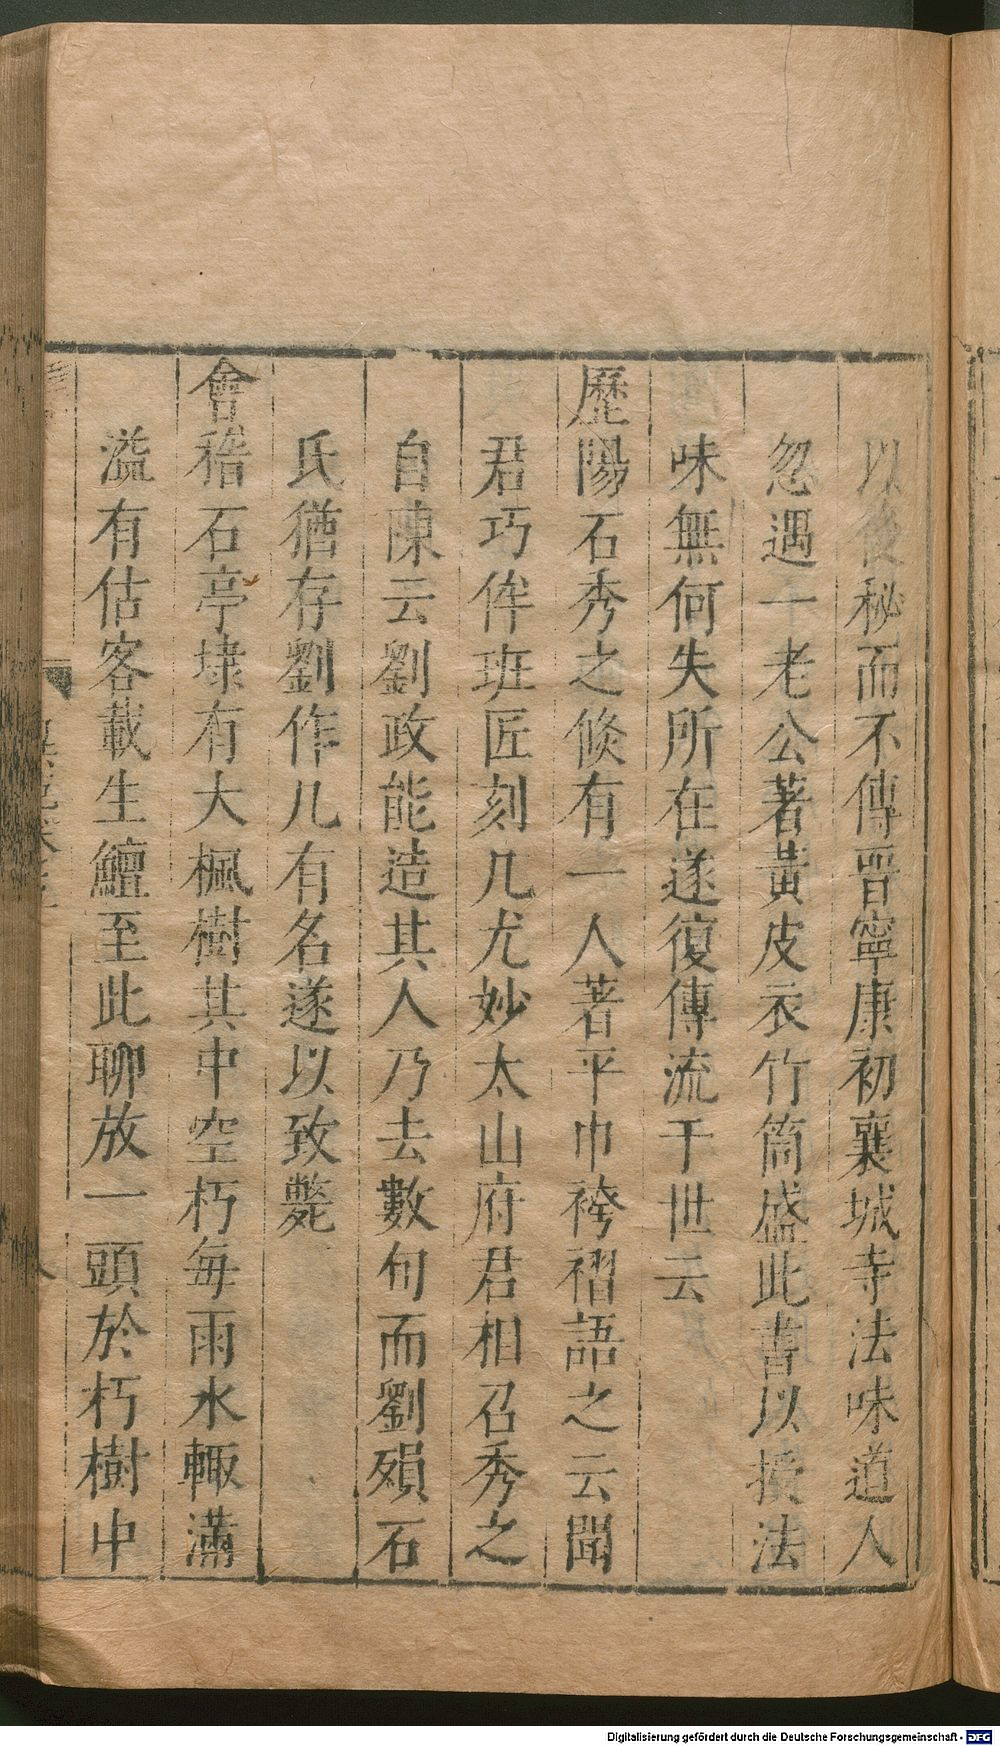 以後秘而不傳晋寧康初襄城寺法味道人
忽遇一老公著黃皮衣竹筒盛此書以授法
味無何失所在遂復傳流于世云
歷陽石秀之倐有一人著平巾袴褶語之云聞
君巧侔班匠刻几尤妙太山府君相召秀之
自陳云劉政能造其人乃去數旬而劉殞石
氏猶存劉作几有名遂以致斃
會稽石亭埭有大楓樹其中空朽每雨水輙滿
溢有估客載生鱣至此聊放一頭於朽樹中
Digitalisierung gefördert durch die Deutsche Forschungsgemeinschaft - DFG